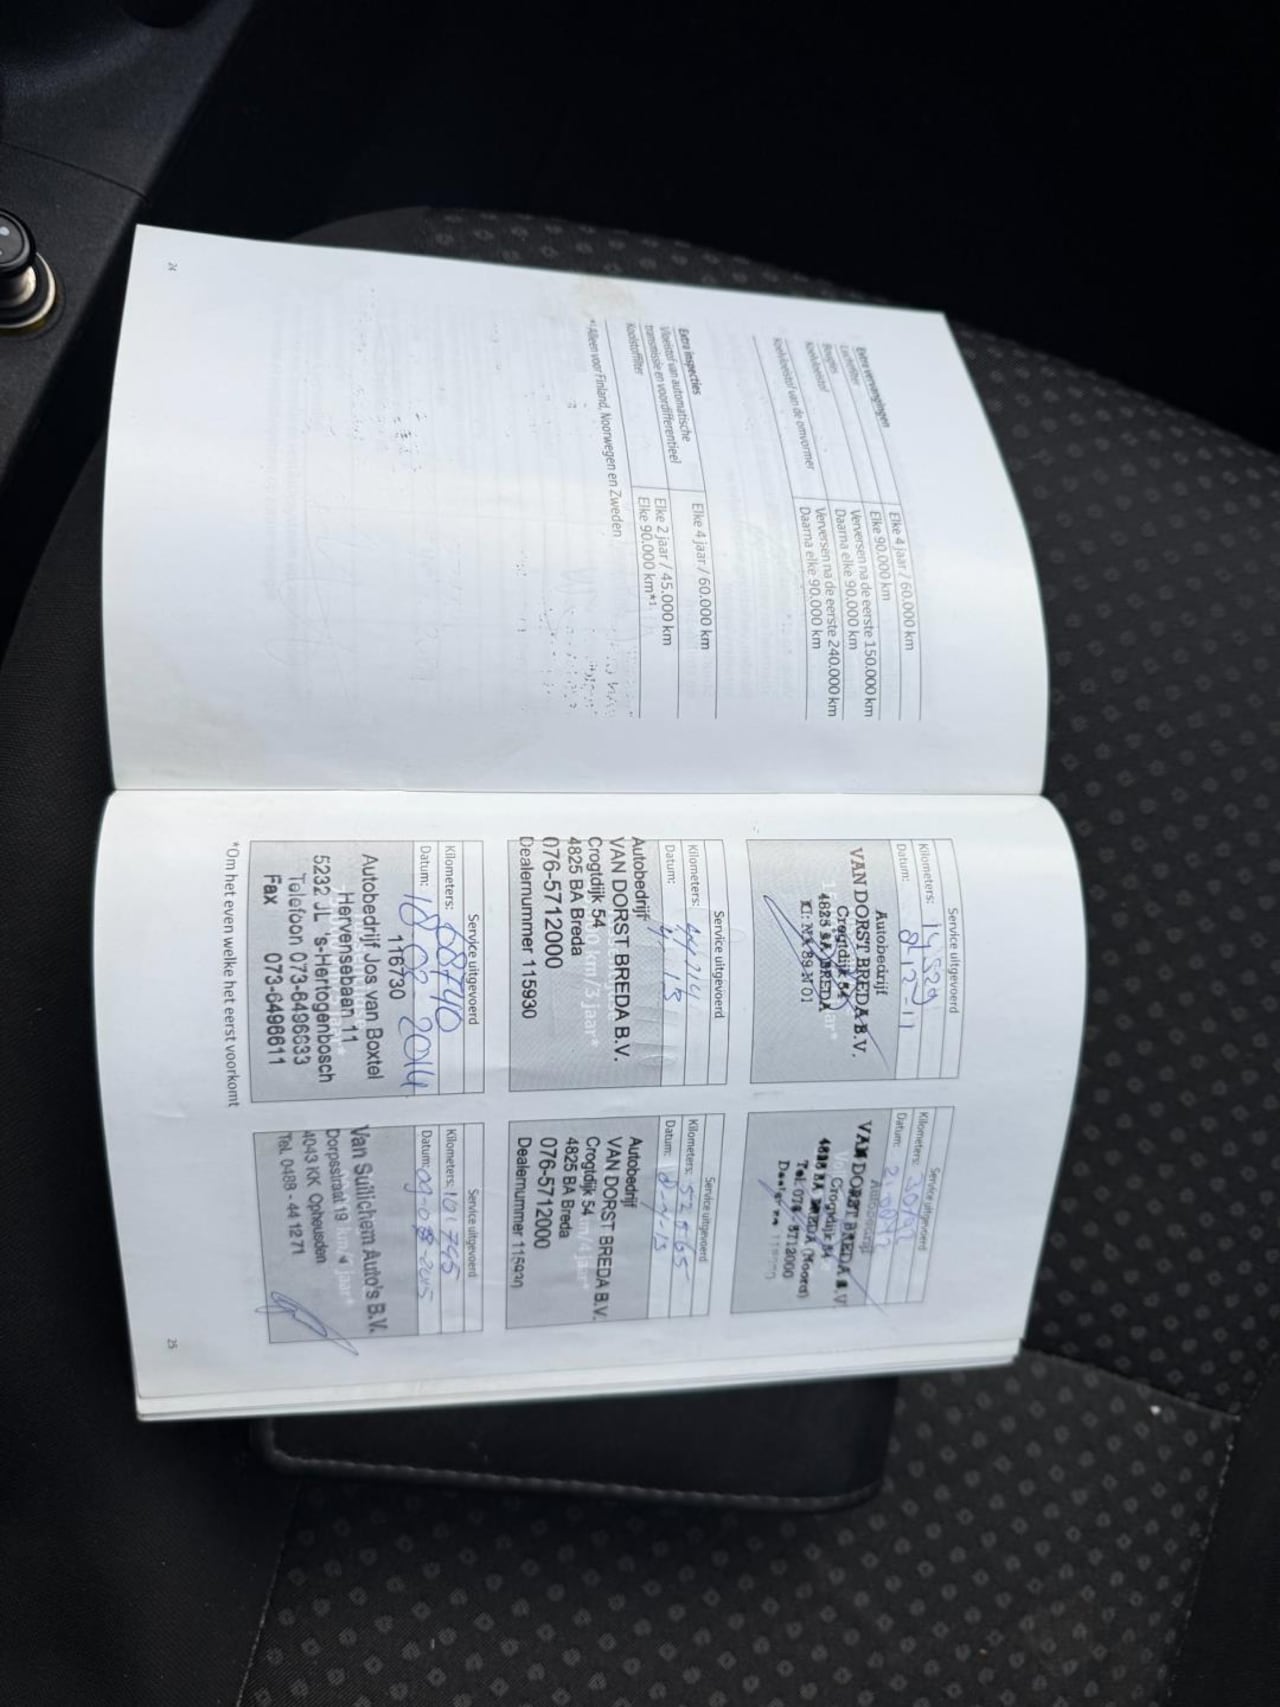 Extra vervangingen
Luchtfilter
Elke 4 jaar / 60.000 km
Bougies
Elke 90.000 km
Koelvloeistof
Verversen na de eerste 150.000 km
Daarna elke 90.000 km
Koelvloeistof van de omvormer
Verversen na de eerste 240.000 km
Daarna elke 90.000 km
Extra inspecties
Vloeistof van automatische
transmissie en voordifferentieel
Elke 4 jaar / 60.000 km
Koolstoffilter
Elke 2 jaar / 45.000 km
Elke 90.000 km*¹
*¹ Alleen voor Finland, Noorwegen en Zweden
24
Service uitgevoerd
Kilometers: 14529
Datum: 2-12-11
Autobedrijf
VAN DORST BREDA B.V.
Crogtdijk 54
4825 BA BREDA
Service uitgevoerd
Kilometers:
Datum:
Autobedrijf
VAN DORST BREDA B.V.
Crogtdijk 54
4825 BA BREDA (Noord)
Tel. 076 - 5712000
Service uitgevoerd
Kilometers:
Datum:
Autobedrijf
VAN DORST BREDA B.V.
Crogtdijk 54
4825 BA Breda
076-5712000
Dealernummer 115930
Service uitgevoerd
Kilometers: 52565
Datum:
Autobedrijf
VAN DORST BREDA B.V.
Crogtdijk 54
4825 BA Breda
076-5712000
Dealernummer 115930
Service uitgevoerd
Kilometers: 68740
Datum: 18-02-2014
116730
Autobedrijf Jos van Boxtel
Hervensebaan 11
5232 JL 's-Hertogenbosch
Telefoon 073-6496633
Fax 073-6496611
Service uitgevoerd
Kilometers: 101745
Datum: 09-03-2015
Van Sullichem Auto's B.V.
Dorpsstraat 19
4043 KK Opheusden
Tel. 0488 - 44 12 71
*Om het even welke het eerst voorkomt
25